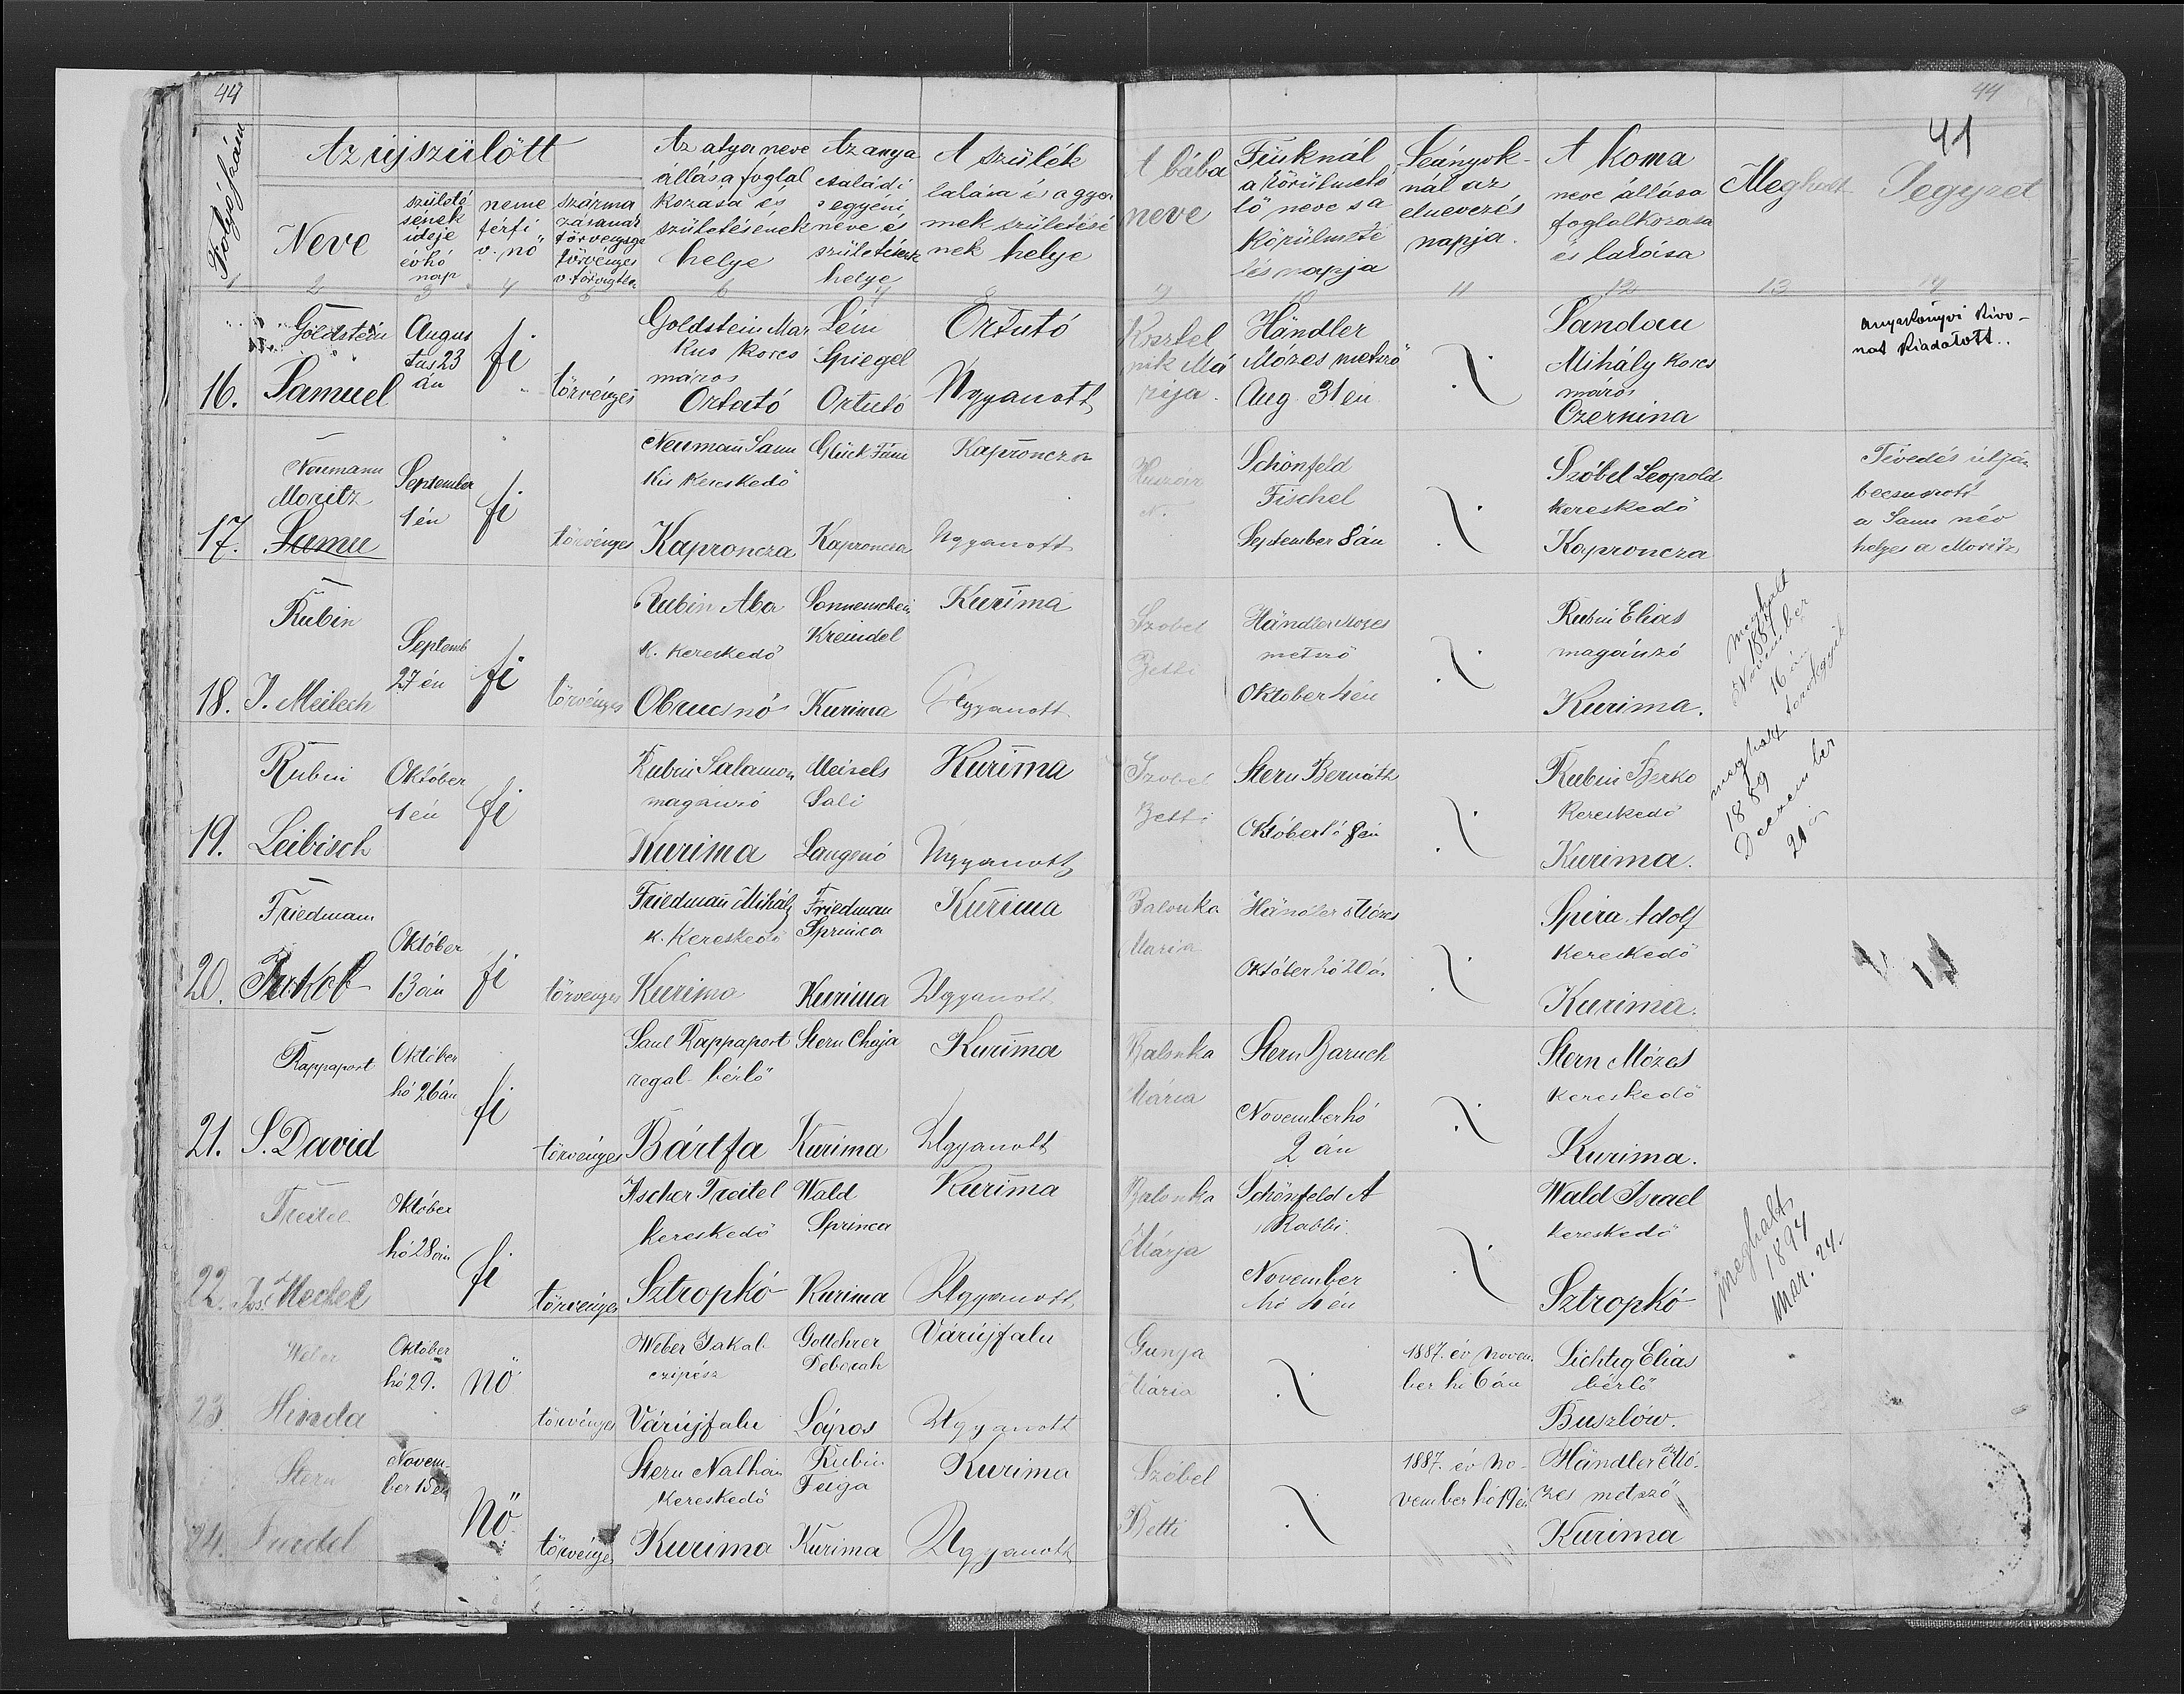 44
44
41
Folyószám
Az újszülött
Neve
születé
sének
ideje
év hó
nap
neme
férfi
v. nő
szárma
zásának
törvényes
v. törvénytlen
Az atya neve
állása foglal
kozása és
születésének
helye
Az anya
családi
s egyéni
neve és
születések
helye
A szülék
lakása és a gyer
mek születésé
nek helye
A bába
neve
Fiuknál
a körülmeté
lő neve s a
körülmeté
lés napja
Leányok-
nál az
elnevezés
napja.
A koma
neve állása
foglalkozása
és lakása
Meghalt
Jegyzet
2 3 4 6 7 8 9 10 11 12 13 14
16.
Goldstein
Samuel
Augus
tus 23
án
fi
törvényes
Goldstein Mar
kus korcs
máros
Ortutó
Léni
Spiegel
Ortutó
Ortutó
Ugyanott
Kosztel
nik Má
rija.
Händler
Mózes metsző
Aug. 31én
Landau
Mihály korcs
máros
Czernina
Anyakönyvi kivo-
nat kiadatott..
17.
Neumann
Moritz
Samu
September
1én
fi
törvényes
Neuman Samu
kis kereskedő
Kaproncza
Glück Fáni
Kaproncza
Kaproncza
Ugyanott
Huszár
N.
Schönfeld
Fischel
September 8án
Szóbel Leopold
kereskedő
Kaproncza
Tévedés utján
becsuszott
a Samu név
helyes a Moritz
18.
Rubin
J. Meilech
Septemb
27én
fi
törvényes
Rubin Aba
k. kereskedő
Obrucsnó
Sonnenschein
Kreindel
Kurima
Kurima
Ugyanott
Szobel
Betti
Händler Mozes
metsző
Oktober 4én
Rubin Elias
magánzó
Kurima.
meghalt
1887
November
16 án
torokgyik
19.
Rubin
Leibisch
Október
1én
fi
Rubin Salamon
magánzó
Kurima
Meisels
Sali
Langenó
Kurima
Ugyanott
Szobel
Betti
Stern Bernáth
Október hó 8án
Rubin Berko
kereskedő
Kurima.
meghalt
1889
December
21 én
20.
Friedmann
Jakob
Október
13án
fi
törvényes
Friedman Mihály
k. kereskedő
Kurima
Friedman
Sprinca
Kurima
Kurima
Ugyanott
Balonka
Maria
Händler Mózes
Október hó 20á.
Spira Adolf
kereskedő
Kurima.
21.
Rappaport
S. David
Október
hó 26án
fi
törvényes
Saul Rappaport
regal-bérlő
Bártfa
Stern Chaja
Kurima
Kurima
Ugyanott
Balonka
Mária
Stern Baruch
November hó
2 án
Stern Mózes
kereskedő
Kurima.
22.
Treitel
Jos. Mechel
Október
hó 28án
fi
törvényes
Ascher Treitel
kereskedő
Sztropkó
Wald
Sprinca
Kurima
Kurima
Ugyanott
Balonka
Márja
Schönfeld A
Rabbi.
November
hó 4én
Wald Israel
kereskedő
Sztropkó
meghalt
1894
Mar. 24.
23.
Weber
Hinda
Október
hó 29.
nő
törvényes
Weber Jakab
czipész
Várújfalu
Gottehrer
Deborah
Lápos
Várújfalu
Ugyanott
Gunya
Mária
1887. év novem
ber hó 6án
Lichtig Elias
bérlő
Buszlow.
24.
Stern
Novem-
ber 15én
nő
törvényes
Stern Nathan
kereskedő
Kurima
Rubin
Feiga
Kurima
Kurima
Ugyanott
Szóbel
Betti
1887. év no-
vember hó 19én
Händler Mó-
zes metsző
Kurima